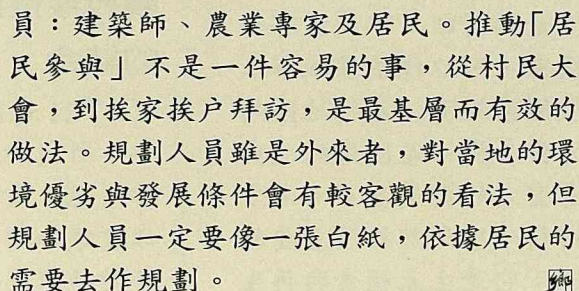 員：建築師、農業專家及居民。推動「居
民參與」不是一件容易的事，從村民大
會，到挨家挨户拜訪，是最基層而有效的
做法。規劃人員雖是外來者，對當地的環
境優劣與發展條件會有較客觀的看法，但
規劃人員一定要像一張白紙，依據居民的
需要去作規劃。 鄉